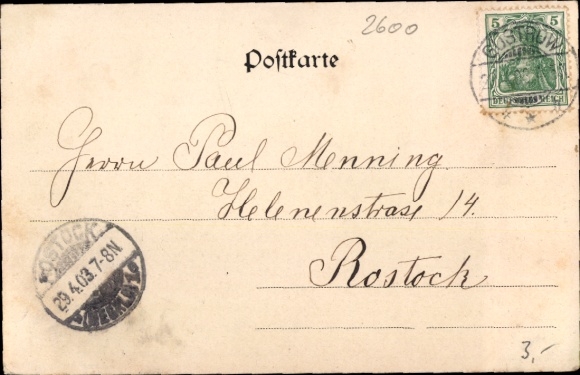 2600
5 5
GÜSTROW
DEUTSCHES REICH
Postkarte
Herrn Paul Menning
Helenenstrase 14.
Rostock
ROSTOCK
29.4.03.7-8N.
(MECKLB)
3,-